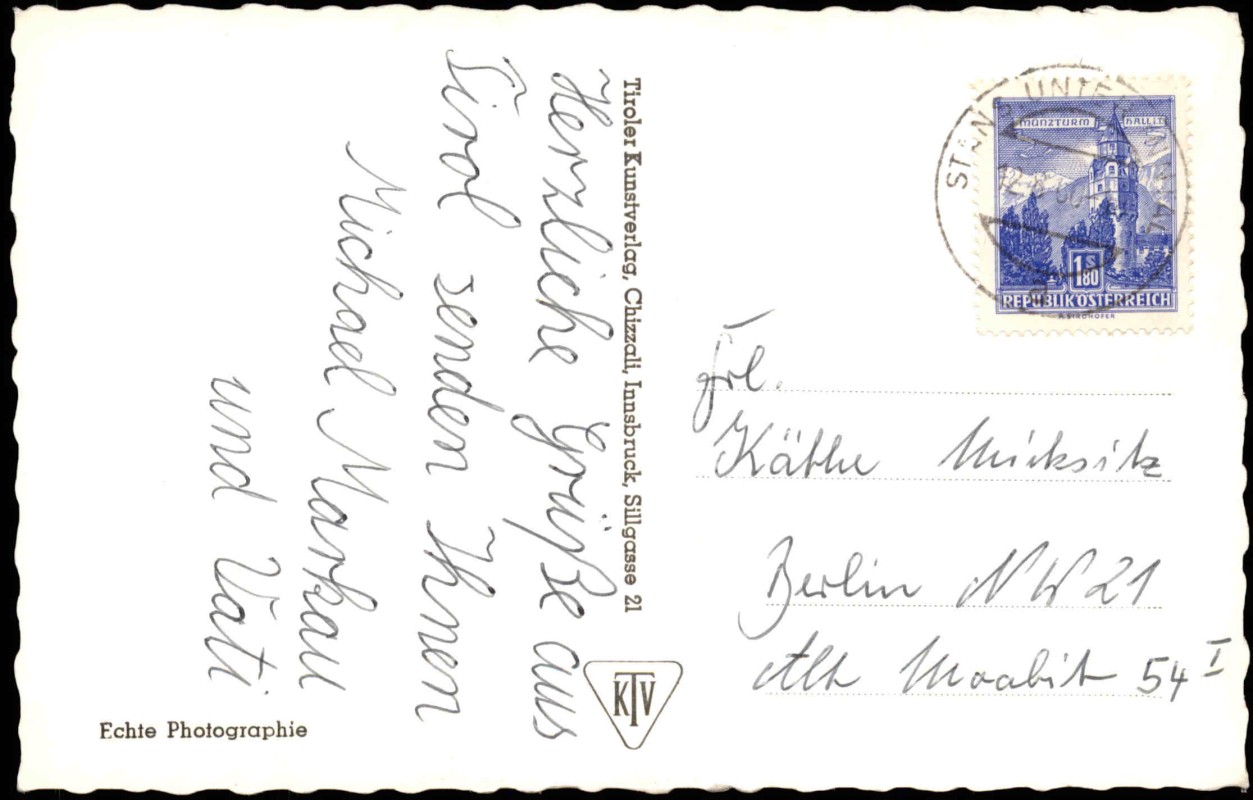 Herzliche Grüße aus
Tirol senden Ihnen
Michael Markau
und Vati
Tiroler Kunstverlag, Chizzali, Innsbruck, Sillgasse 21
KTV
Echte Photographie
MÜNZTURM HALL I.T.
1 S 80
REPUBLIK ÖSTERREICH
STANS
Frl.
Käthe
Berlin NW 21
Alt Moabit 54 I